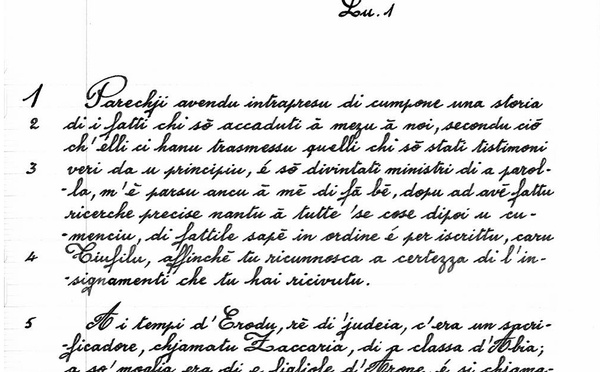 Lu. 1
1 Parechji avendu intrapresu di cumpone una storia
2 di i fatti chi sō accaduti ā mezu ā noi, secondu ciō
ch'elli ci hanu trasmessu quelli chi sō stati testimoni
3 veri da u principiu, é sō divintati ministri di a parol-
-la, m'ē parsu ancu ā mē di fā bē, dopu ad avē fattu
ricerche precise nantu ā tutte 'se cose dipoi u cu-
-menciu, di fattile sapē in ordine é per iscrittu, caru
4 Tiufilu, affinchē tu ricunnosca a certezza di l'in-
-signamenti che tu hai ricivutu.
5 A i tempi d'Erodu, rē di 'judeia, c'era un sacri-
-ficadore, chjamatu Zaccaria, di a classa d'Abia;
a so' moglia era di e figliole d'Arone, é si chjama-